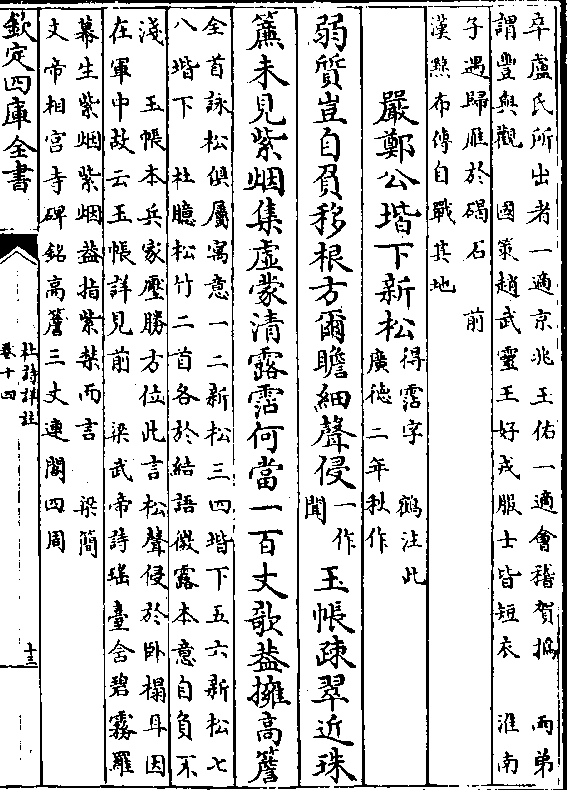 卒盧氏所出者一適京兆王佑一適會稽賀撝　兩弟
謂豐與觀　國策趙武靈王好戎服士皆短衣　淮南
子遇歸雁於碣石　前
漢黥布傳自戰其地
嚴鄭公堦下新松得霑字　鶴注此
廣德二年秋作
弱質豈自負移根方爾瞻細聲侵一作
聞玉帳疎翠近珠
簾未見紫烟集虛蒙清露霑何當一百丈欹蓋擁高簷
全首詠松俱屬寓意一二新松三四堦下五六新松七
八堦下　杜臆松竹二首各於結語微露本意自負不
淺　玉帳本兵家壓勝方位此言松聲侵於卧榻耳因
在軍中故云玉帳詳見前　梁武帝詩瑤臺含碧霧羅
幕生紫烟紫烟蓋指紫禁而言　梁簡
文帝相宮寺碑銘高簷三丈連閣四周
欽定四庫全書
杜詩詳註
卷十四
十三